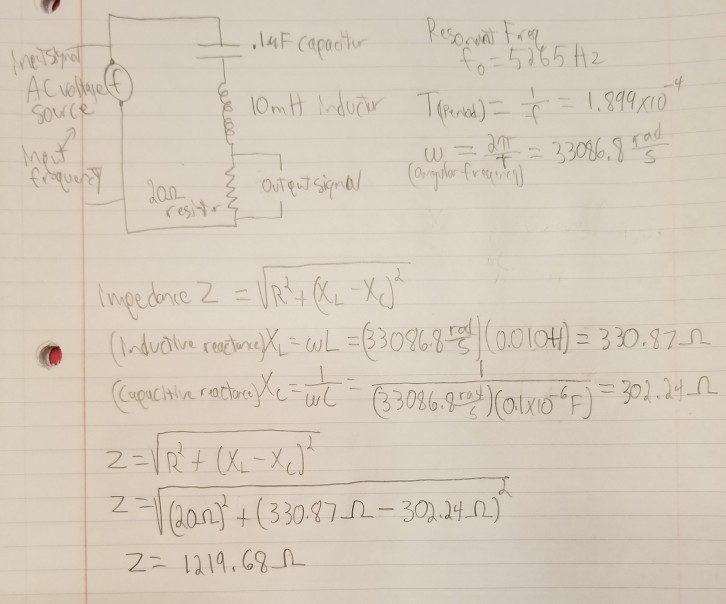 .1µF capacitor
Input signal
AC voltage source
f
Input frequency
10mH inductor
20Ω resistor
output signal
Resonant Freq
f₀ = 5265 Hz
T(Period) = 1/f = 1.899x10⁻⁴
ω = 2π/T = 33086.8 rad/s
(angular frequency)
Impedance Z = √(R² + (X_L - X_C)²)
(Inductive reactance) X_L = ωL = (33086.8 rad/s)(0.010H) = 330.87Ω
(Capacitive reactance) X_C = 1/ωC = 1/((33086.8 rad/s)(0.1x10⁻⁶F)) = 302.24Ω
Z = √(R² + (X_L - X_C)²)
Z = √((20Ω)² + (330.87Ω - 302.24Ω)²)
Z = 1219.68Ω